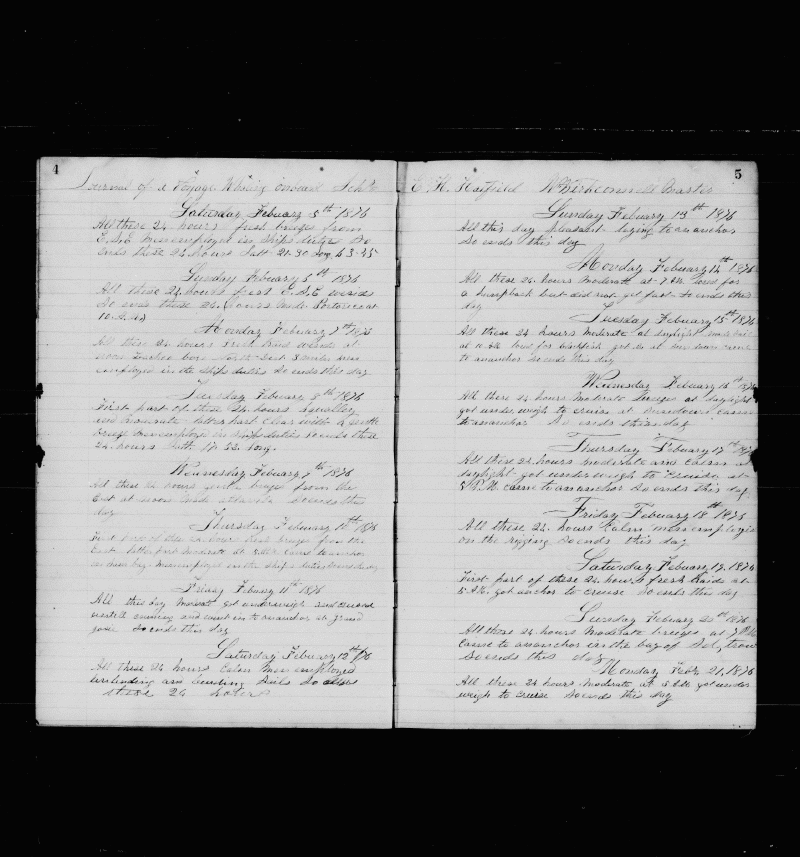 4
Journal of a Voyage Whaling onboard Schr
Saturday Febuary 5th 1876
All these 24 hours fresh breezes from
E.S.E men employed in ships duties So
Ends these 24 hours Latt 21.30 Long 43.35
Sunday Febuary 6th 1876
All these 24 hours fresh E.S.E winds
So ends these 24 hours
10 A.M
Monday Febuary 7th 1876
All these 24 hours fresh winds at
noon North East 8 miles men
employed in the ships duties So ends this day
Tuesday Febuary 8th 1876
First part of these 24 hours squally
and moderate latter part Clear with a
breeze men employed in ships duties So ends these
24 hours Latt 17.32 Long.
Wednesday Febuary 9th 1876
All these 24 hours breezes from the
East at noon So ends this
day
Thursday Febuary 10th 1876
First part of these 24 hours fresh breezes from the
East latter part moderate at came to anchor
in men employed in the ships duties So ends this day
Friday Febuary 11th 1876
All this day Moderate got underweigh and cruised
untill evening and went in to anchor at
So ends this day
Saturday Febuary 12th 76
All these 24 hours Calm Men employed
unbending and bending Sails So ends
these 24 hours
5
E. H. Hatfield Master
Sunday Febuary 13th 1876
All this day pleasant laying to an anchor
So ends this day
Monday Febuary 14th 1876
All these 24 hours Moderate at 7 A.M. lowed for
a humpback but did not get fast So ends this
day
Tuesday Febuary 15th 1876
All these 24 hours Moderate at daylight
at 10 A.M. lowed for blackfish got at Sun down came
to an anchor So ends this day
Wednesday Febuary 16th 1876
All these 24 hours Moderate breezes at daylight
got under weigh to cruise at Sundown came
to an anchor So ends this day
Thursday Febuary 17th 1876
All these 24 hours moderate and Calm at
daylight got under weigh to Cruise at
5 P.M. Came to an anchor So ends this day
Friday Febuary 18th 1876
All these 24 hours Calm men employed
on the rigging So ends this day
Saturday Febuary 19, 1876
First part of these 24 hours fresh Raids at
5 A.M. got anchor to cruise So ends this day
Sunday Febuary 20th 1876
All these 24 hours Moderate breezes at 7 P.M
Came to an anchor in the bay of
So ends this day
Monday Feb 21, 1876
All these 24 hours moderate at 5 A.M. got under
weigh to cruise So ends this day